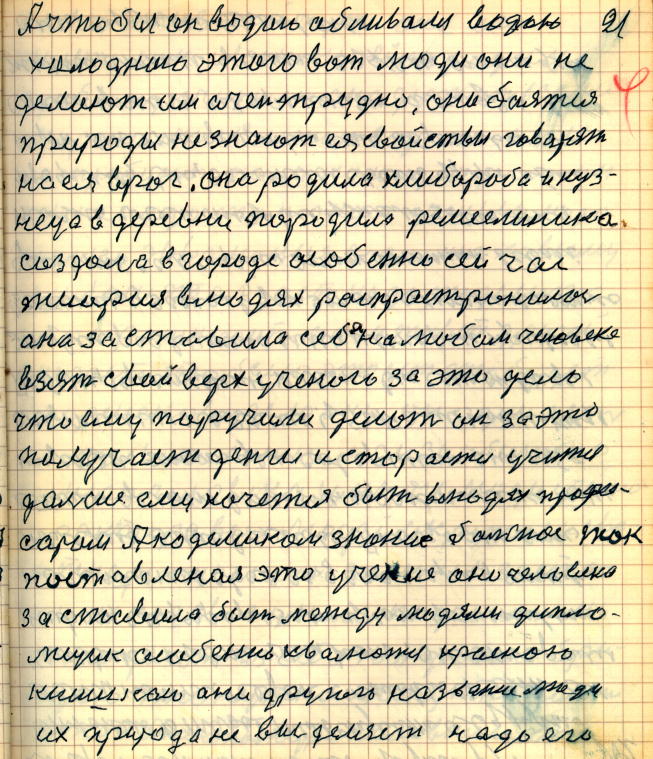 А чтобы он водою обливался водою 21
холодною этого вот люди они не
делают им очен трудно, они баятся
природы не знают ея свойства говарят
на ея враг. она родила хлибароба и куз-
неца в деревни породила ремеслиника.
создала в городе особенно сей час
тиория в людях роспрастронилас
она заставила себя на любом человеке
взят свой верх ученого за это дело
что ему поручили делат он за это
получает денги и стораетя учится
далше ему хочется быт в людях профе-
саром Академиком знание болшое так
поставленая это учение оно человека
заставила быт между людями дипло-
особенно хвалюжя красною
они другого название люди
их природа не выделяет надо его